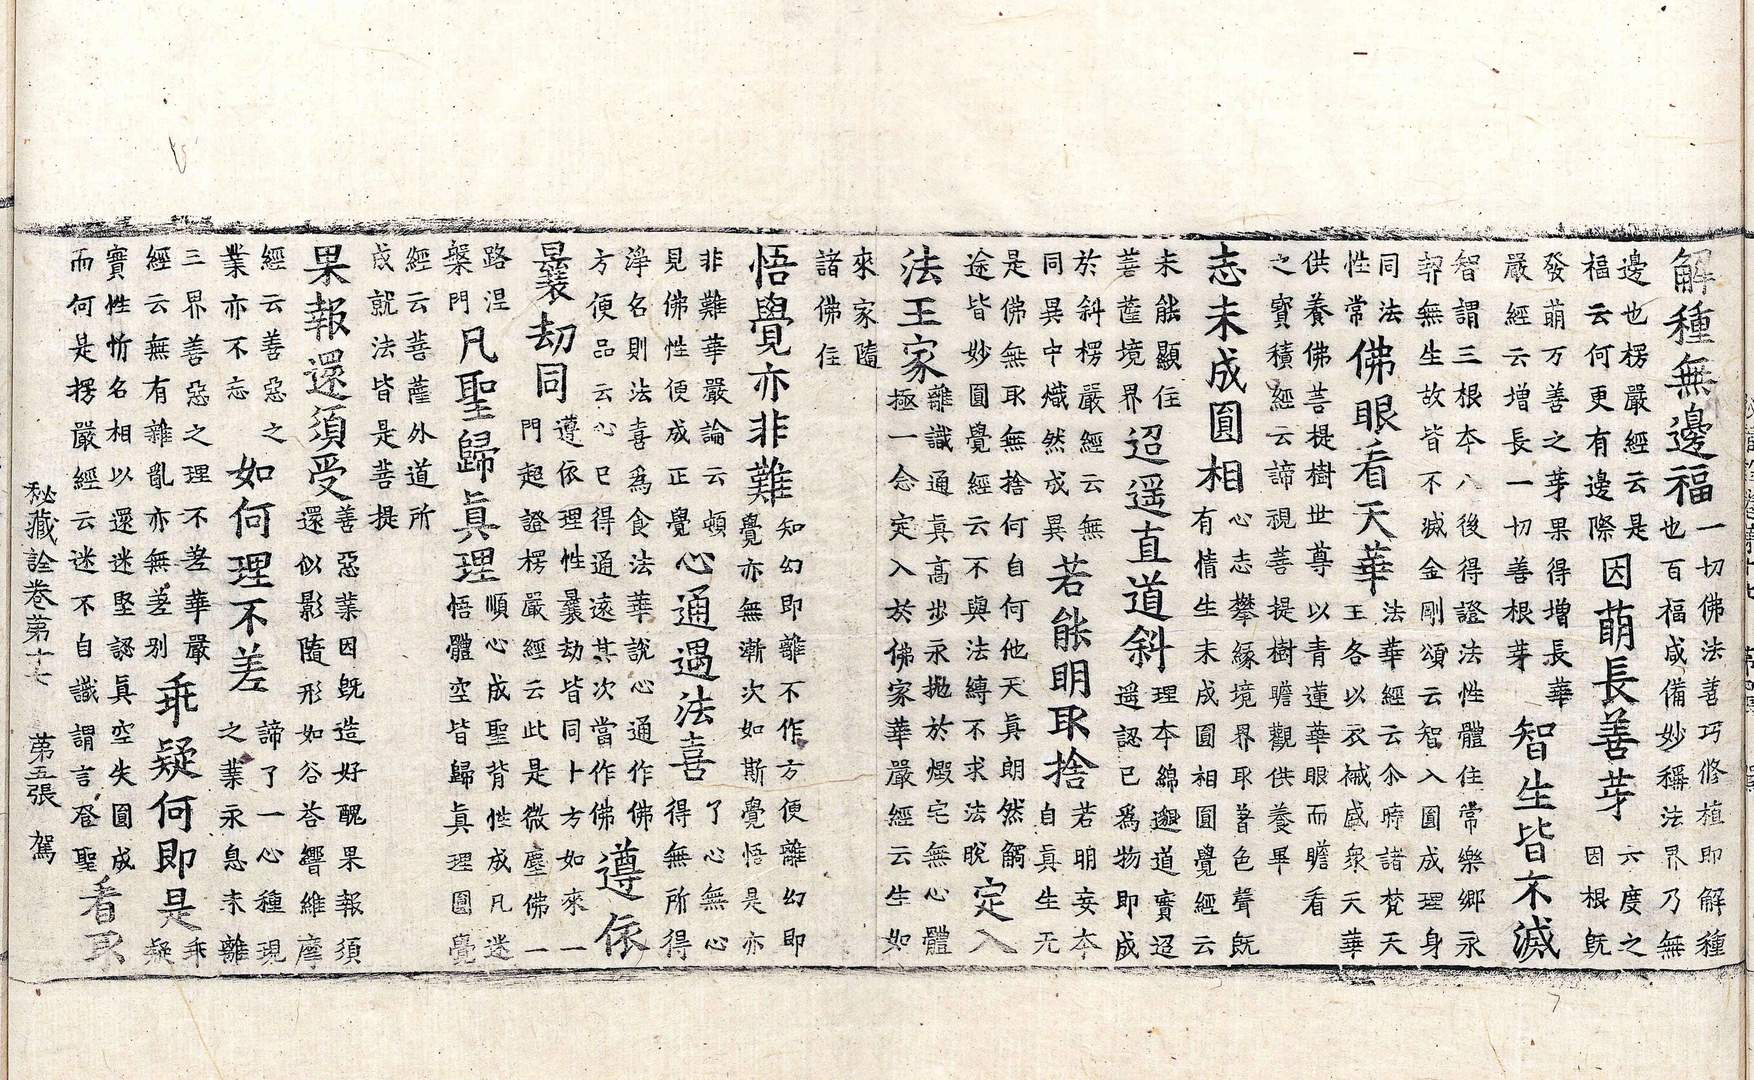 解種無邊福一切佛法善巧修植即解種
也百福咸備妙稱法界乃無
邊也楞嚴經云是
福云何更有邊際
因萌長善芽六度之
因根既
發萌万善之芽果得增長華
嚴經云增長一切善根芽
智生皆不滅
智謂三根本八後得證法性體住常樂郷永
契無生故皆不滅金剛頌云智入圓成理身
同法
性常
佛眼看天華法華經云尒時諸梵天
王各以衣祴盛衆天華
供養佛菩提樹世尊以青蓮華眼而瞻看
之寳積經云諦視菩提樹瞻觀供養畢
志未成圓相心志攀緣境界取著色聲既
有情生未成圓相圓覺經云
未能顯住
菩薩境界
迢遥直道斜理本綿邈道實迢
遥認已爲物即成
於斜楞嚴經云無
同異中熾然成異
若能明取捨若明妄本
自真生无
是佛無取無捨何自何他天真朗然觸
途皆妙圓覺經云不與法縛不求法脫
定入
法王家離識通真高步永抛於煆宅無心體
極一念定入於佛家華嚴經云生如
來家隨
諸佛住
悟覺亦非難知幻即離不作方便離幻即
覺亦無漸次如斯覺悟是亦
非難華嚴論云頓
見佛性便成正覺
心通遇法喜了心無心
得無所得
淨名則法喜爲食法華說心通作佛
方便品云心已得通遠其次當作佛
遵依
曩劫同遵依理性曩劫皆同卜方如來一
門超證楞嚴經云此是微塵佛一
路涅
槃門
凡聖歸眞理順心成聖背性成凡迷
悟體空皆歸眞理圓覺
經云菩薩外道所
成就法皆是菩提
果報還須受善惡業因既造好醜果報須
還似影隨形如谷荅響維摩
經云善惡之
業亦不忘
如何理不差諦了一心種現
之業永息未離
三界善惡之理不差華嚴
經云無有雜亂亦無差別
乖疑何即是乖
疑
實性忻名相以還迷堅認眞空失圓成
而何是楞嚴經云迷不自識謂言登聖
看取
秘藏詮卷第十七 第五張 駕